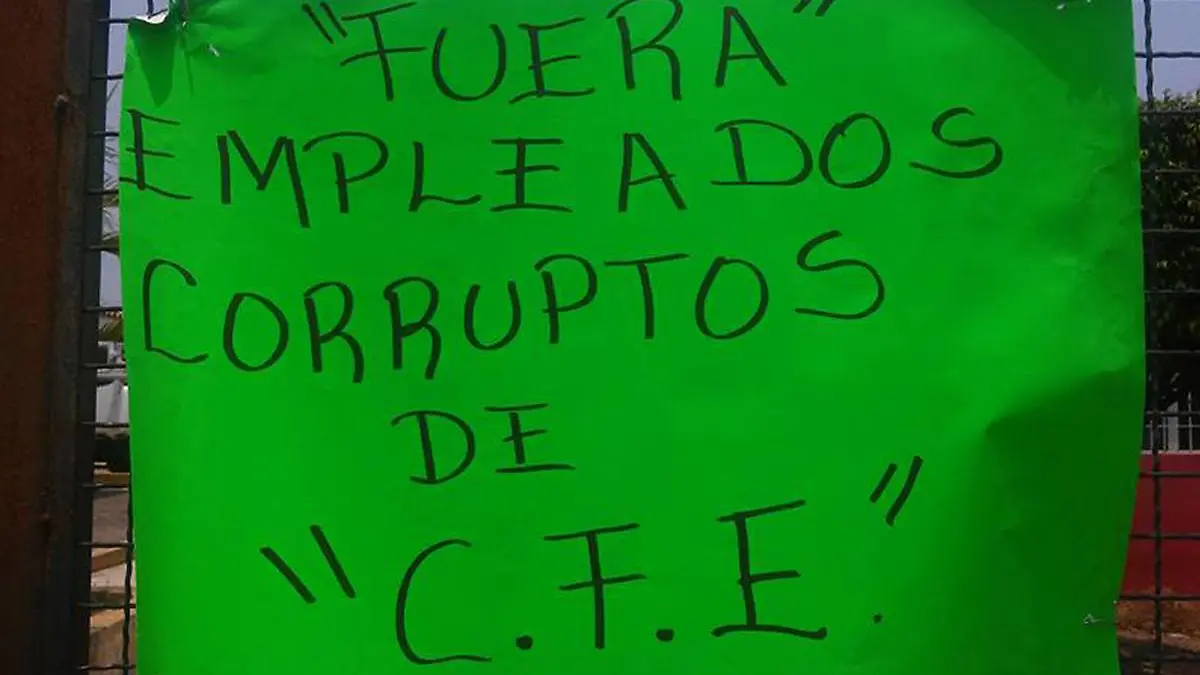 "FUERA"
EMPLEADOS
CORRUPTOS
DE
"C.F.E."